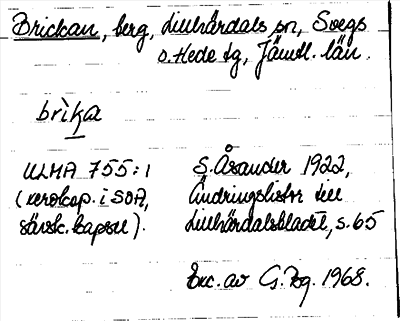 Brickan, berg, Lillhärdals sn, Svegs
o. Hede tg, Jämtl. län.
brìka
ULMA 755:1
(xerokop. i SOA,
särsk. kapsel).
S. Åsander 1922,
Ändringslistor till
Lillhärdalsbladet, s. 65
Exc. av G. Pg. 1968.